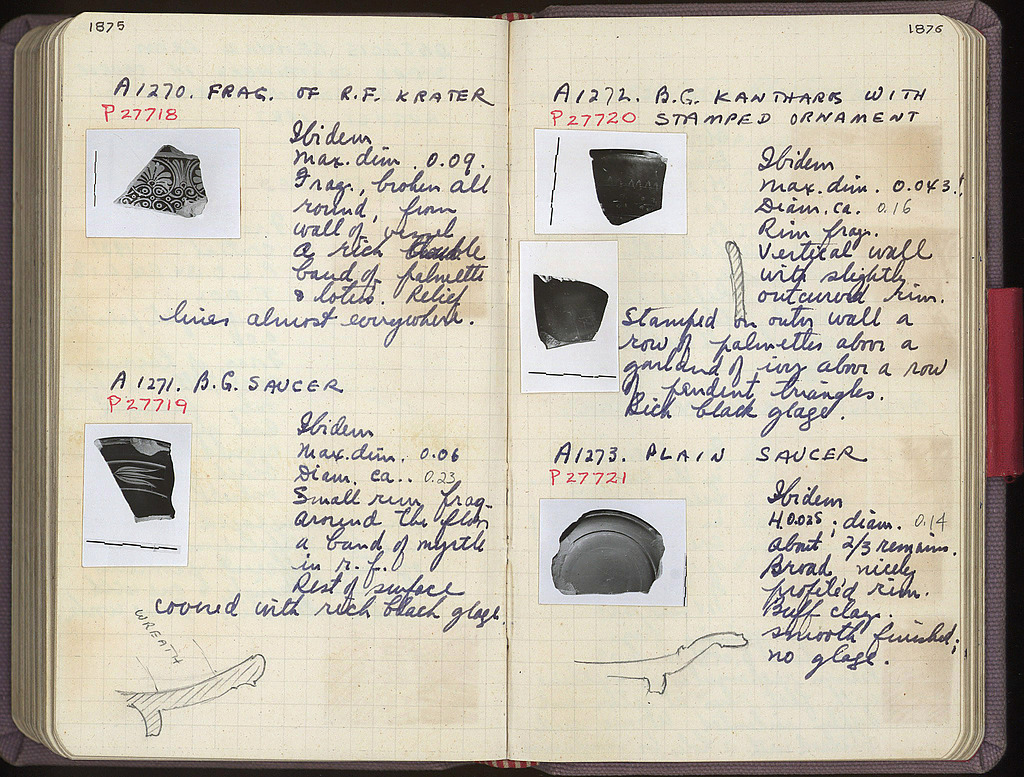 1875
A1270. FRAG. OF R.F. KRATER
P 27718
Ibidem
Max. dim. 0.09.
Frag., broken all
round, from
wall of vessel
A rich double
band of palmette
& lotus. Relief
lines almost everywhere.
A1271. B.G. SAUCER
P 27719
Ibidem
Max. dim. 0.06
Diam. ca.. 0.23
Small rim frag.
Around the floor
a band of myrtle
in r.f.
Rest of surface
covered with rich black glaze
WREATH
1876
A1272. B.G. KANTHAROS WITH
P 27720 STAMPED ORNAMENT
Ibidem
Max. dim. 0.043.
Diam. ca. 0.16
Rim frag.
Vertical wall
with slightly
outcurved rim.
Stamped on outer wall a
row of palmettes above a
garland of ivy above a row
of pendent triangles.
Rich black glaze.
A1273. PLAIN SAUCER
P 27721
Ibidem
H 0.025; diam. 0.14
About 2/3 remains.
Broad, nicely
profiled rim.
Buff clay.
smooth finished;
no glaze.